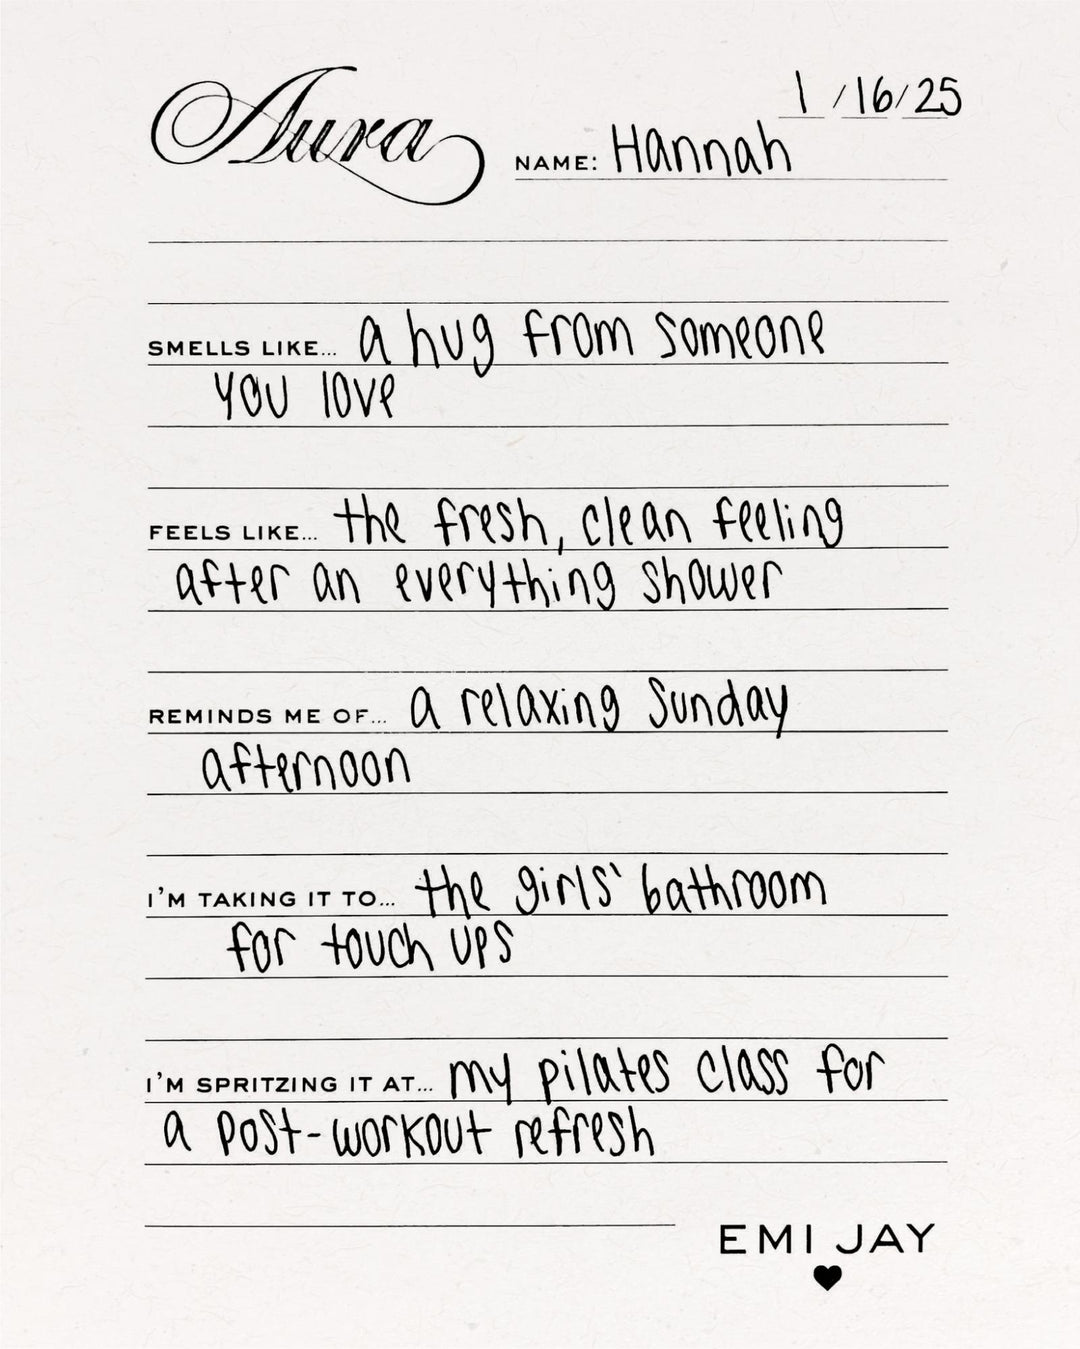 Aura
1/16/25
NAME: Hannah
SMELLS LIKE... a hug from someone
you love
FEELS LIKE... the fresh, clean feeling
after an everything shower
REMINDS ME OF... a relaxing Sunday
afternoon
I'M TAKING IT TO... the girls' bathroom
for touch ups
I'M SPRITZING IT AT... my pilates class for
a post-workout refresh
EMI JAY